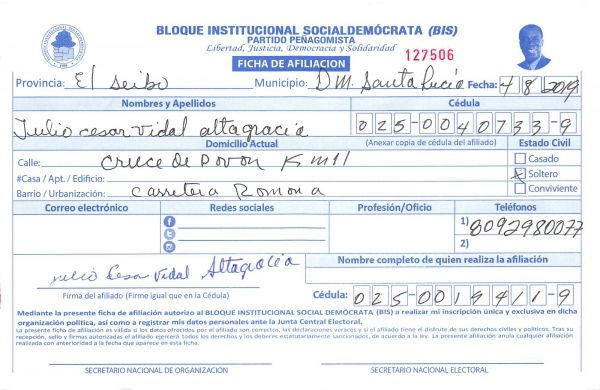 BLOQUE INSTITUCIONAL SOCIALDEMÓCRATA (BIS)
PARTIDO PEÑAGOMISTA
Libertad, Justicia, Democracia y Solidaridad
FICHA DE AFILIACION
127506
Provincia: El Seibo Municipio: D.M. Santa Lucía Fecha: 4/8/2019
Nombres y Apellidos Cédula
Julio cesar Vidal altagracia 025-0040733-9
Domicilio Actual (Anexar copia de cédula del afiliado) Estado Civil
Calle: Cruce de Pavon Km 11 Casado
#Casa / Apt. / Edificio: X Soltero
Barrio / Urbanización: Carretera Romana Conviviente
Correo electrónico Redes sociales Profesión/Oficio Teléfonos
1) 8092980077
2)
Julio Cesar Vidal Altagracia
Nombre completo de quien realiza la afiliación
Firma del afiliado (Firme igual que en la Cédula)
Cédula: 025-0019471-9
Mediante la presente ficha de afiliación autorizo al BLOQUE INSTITUCIONAL SOCIAL DEMÓCRATA (BIS) a realizar mi inscripción única y exclusiva en dicha
organización política, así como a registrar mis datos personales ante la Junta Central Electoral.
La presente ficha de afiliación es válida si los datos ofrecidos por el afiliado son correctos, las declaraciones veraces y si el afiliado tiene el disfrute de sus derechos civiles y políticos. Tras su
recepción, sello y firmas autorizadas el afiliado ejercerá todos los derechos y los deberes estatutariamente sancionados, de acuerdo a la ley. La presente afiliación anula cualquier afiliación
realizada con anterioridad a la fecha que aparece en esta ficha.
SECRETARIO NACIONAL DE ORGANIZACIÓN SECRETARIO NACIONAL ELECTORAL